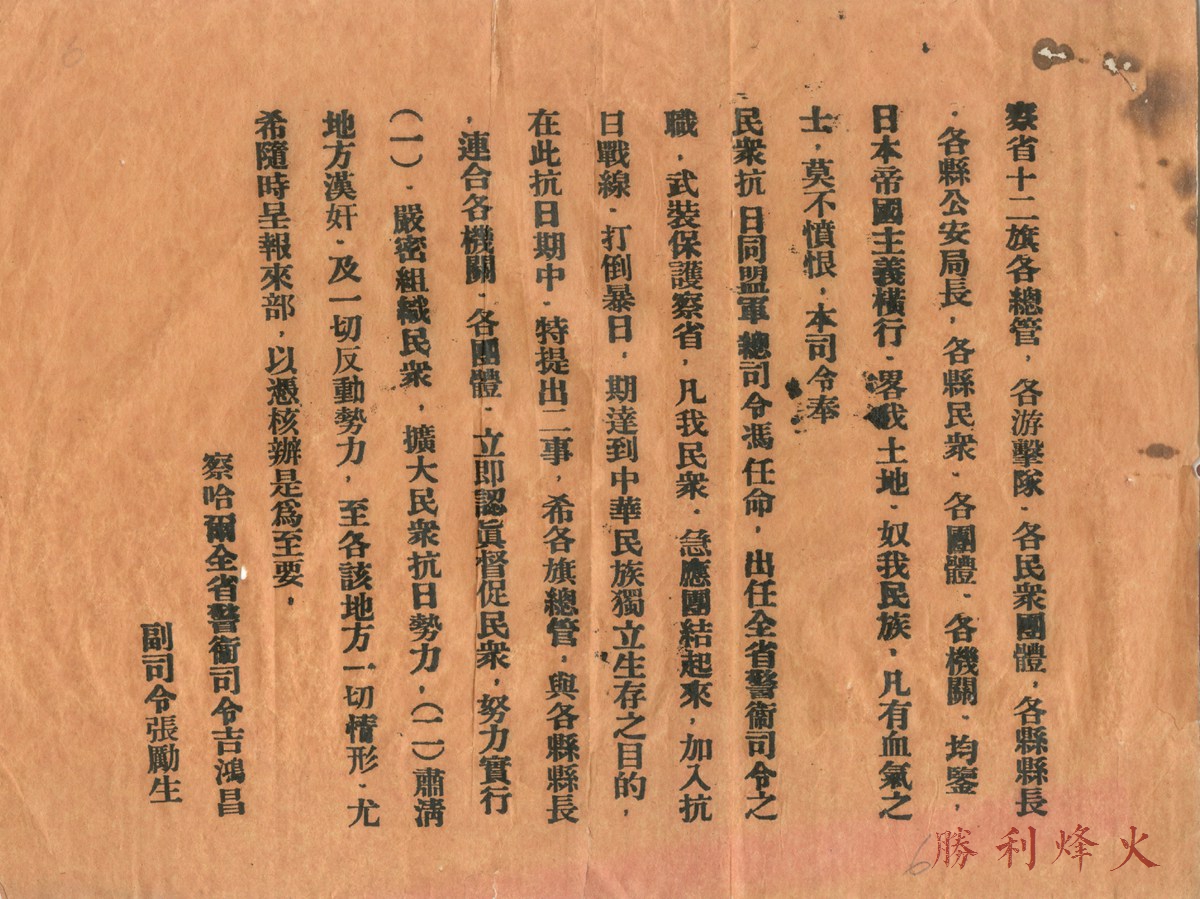 察省十二旗各總管，各游擊隊·各民衆團體，各縣縣長
·各縣公安局長，各縣民衆·各團體·各機關·均鑒，
日本帝國主義橫行·畧我土地·奴我民族，凡有血氣之
士，莫不憤恨，本司令奉
民衆抗日同盟軍總司令馮任命，出任全省警衞司令之
職，武裝保護察省，凡我民衆·急應團結起來，加入抗
日戰線·打倒暴日，期達到中華民族獨立生存之目的，
在此抗日期中·特提出二事，希各旗總管，與各縣縣長
，連合各機關·各團體·立即認眞督促民衆，努力實行
（一）·嚴密組織民衆，擴大民衆抗日勢力，（二）肅淸
地方漢奸·及一切反動勢力，至各該地方一切情形·尤
希隨時呈報來部，以憑核辦是爲至要，
察哈爾全省警衞司令吉鴻昌
副司令張勵生
勝利烽火
6
6